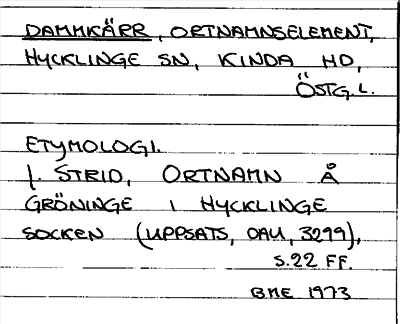 DAMMKÄRR, ORTNAMNSELEMENT,
HYCKLINGE SN, KINDA HD,
ÖSTG.L.
ETYMOLOGI.
J. STRID, ORTNAMN Å
GRÖNINGE I HYCKLINGE
SOCKEN (UPPSATS, OAU, 3299),
S.22 FF.
BME 1973